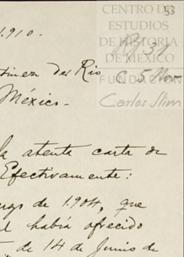 53
CENTRO DE
ESTUDIOS
DE HISTORIA
DE MÉXICO
FUNDACIÓN
Carlos Slim
1.910.
5 Nov.
tinez del Rio
México.
la atente carta de
Efectivamente:
de 1904, que
habia ofrecido
de 14 de Junio de